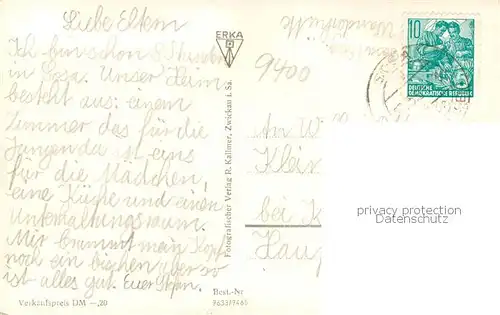 Liebe Eltern
Ich bin schon 8 Stunden
in Unser Heim
besteht aus: einem
Zimmer das für die
Jungen da ist eins
für die Mädchen,
eine Küche und einen
Unterhaltungsraum.
Mir brummt mein Kopf
noch ein bischen aber so
ist alles gut. Euer Stefan.
Verkaufspreis DM —,20
ERKA
Fotografischer Verlag R. Kallmer, Zwickau i. Sa.
Best.-Nr
P633/7465
9400
10
DEUTSCHE
DEMOKRATISCHE REPUBLIK
An
Klein
bei K
Haup
privacy protection
Datenschutz